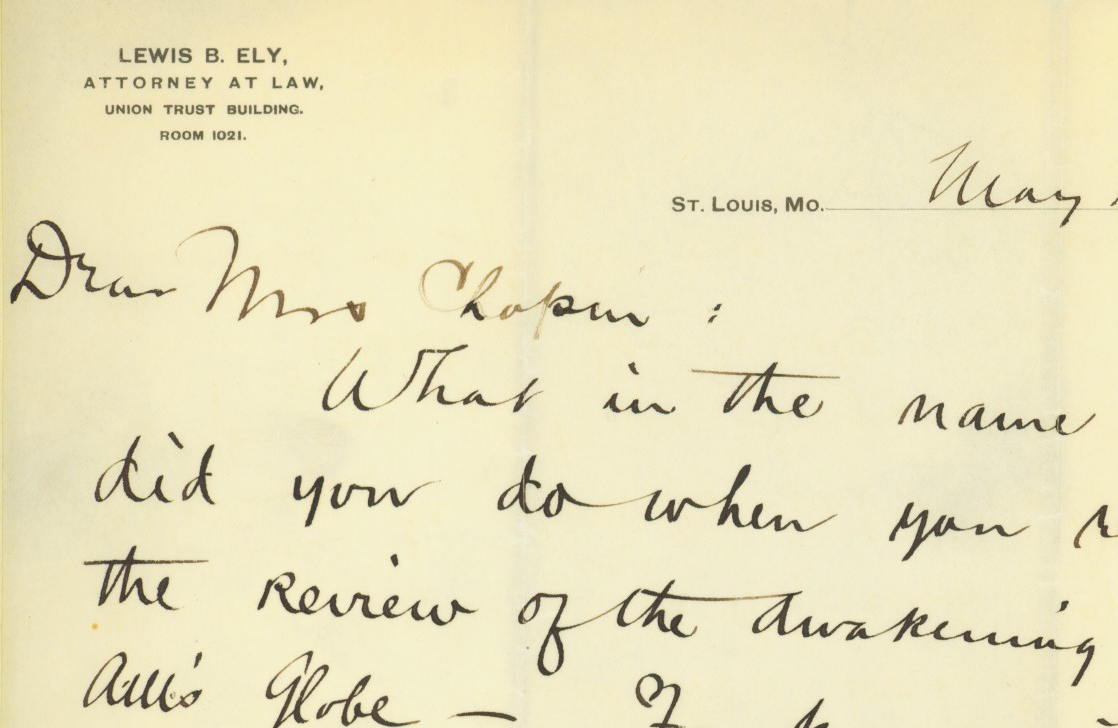 LEWIS B. ELY,
ATTORNEY AT LAW,
UNION TRUST BUILDING.
ROOM 1021.
ST. LOUIS, MO. May
Dear Mrs Chopin :
What in the name
did you do when you
the review of the Awakening
Globe —